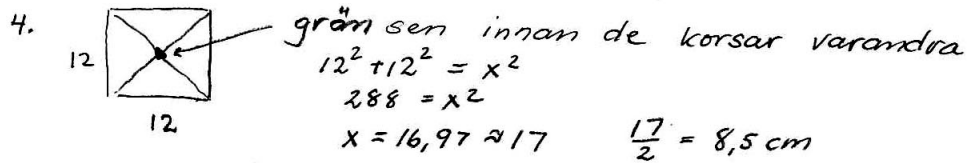 4.
12
12
gränsen innan de korsar varandra
12² + 12² = x²
288 = x²
x = 16,97 ≈ 17    17/2 = 8,5 cm